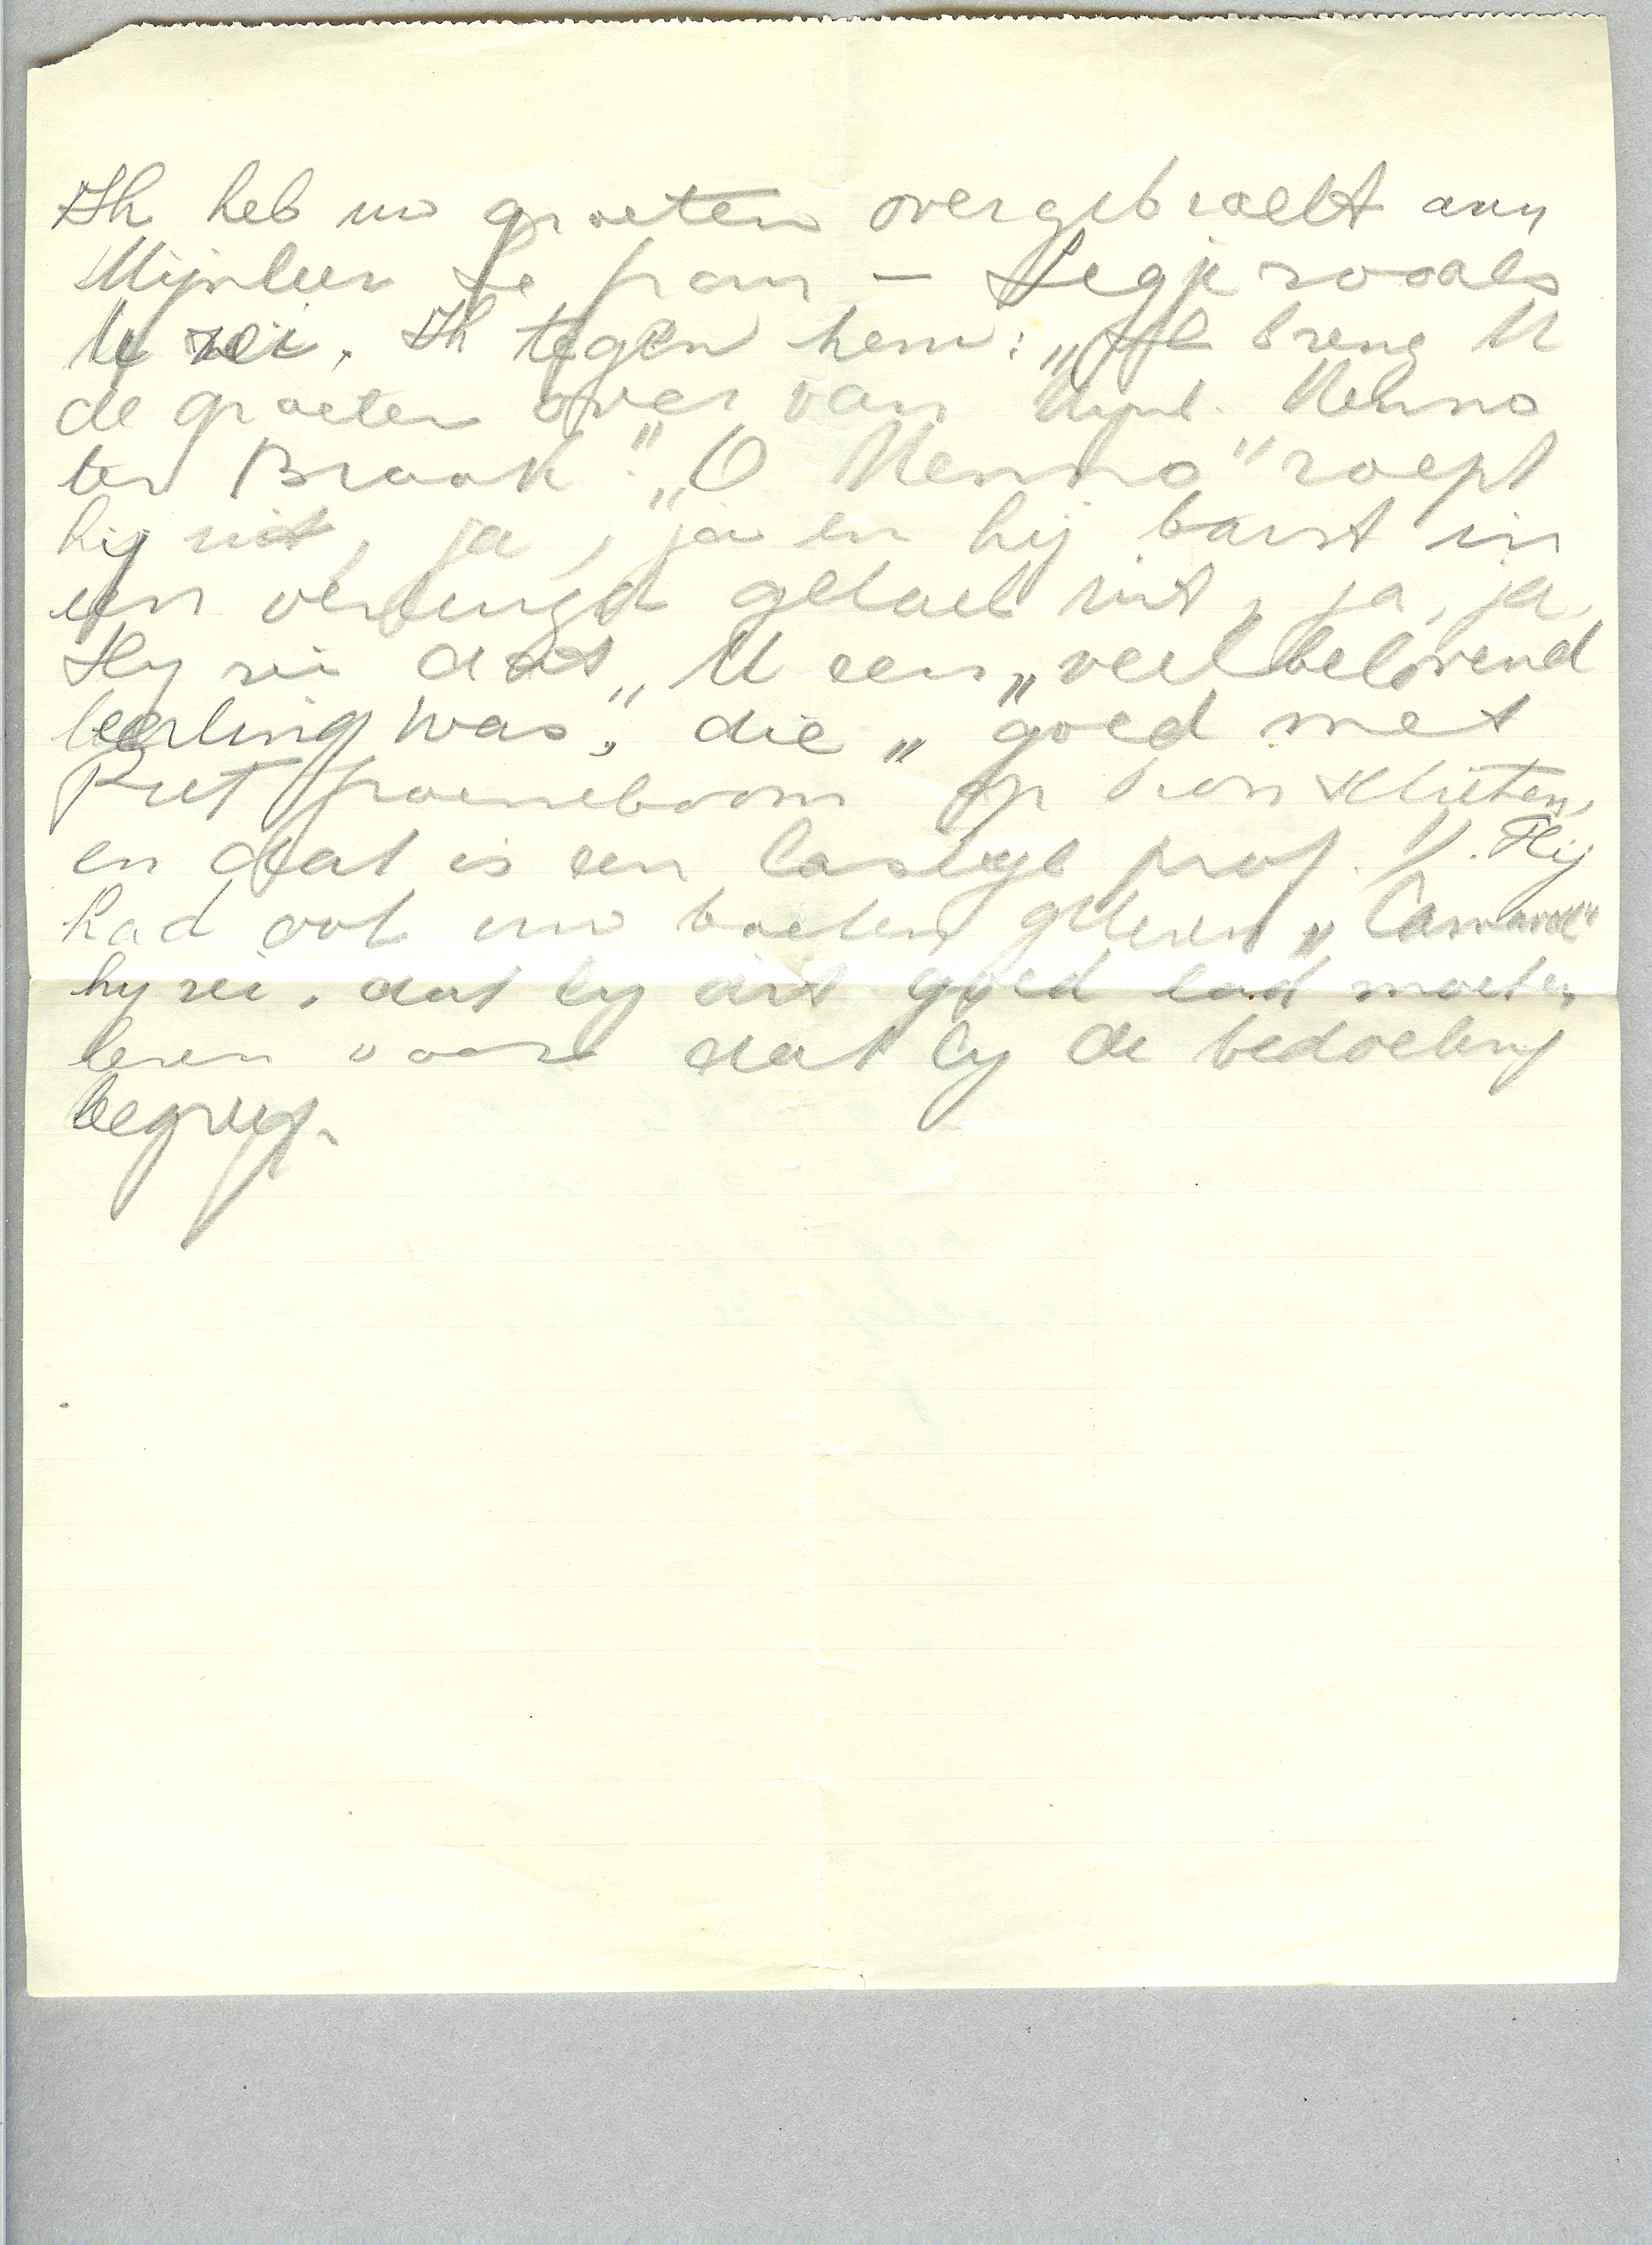 Ik heb uw groeten overgebracht aan
Mijnheer Le fram — Segje zooals
U zei. Ik tegen hem: „Ik breng U
de groeten over van Mijnh. Menno
ter Braak". „O Menno" roept
hij uit, ja, ja en hij barst in
een verheugd gelach uit, ja, ja.
Hij zei dat „U een „veelbelovend
leerling was", die „goed met
Piet op kon schieten,
en dat is een lastige prof.". Hij
had ook uw boeken gelezen „Carnaval"
hij zei, dat hij dit goed had moeten
lezen voor dat hij de bedoeling
begreep.